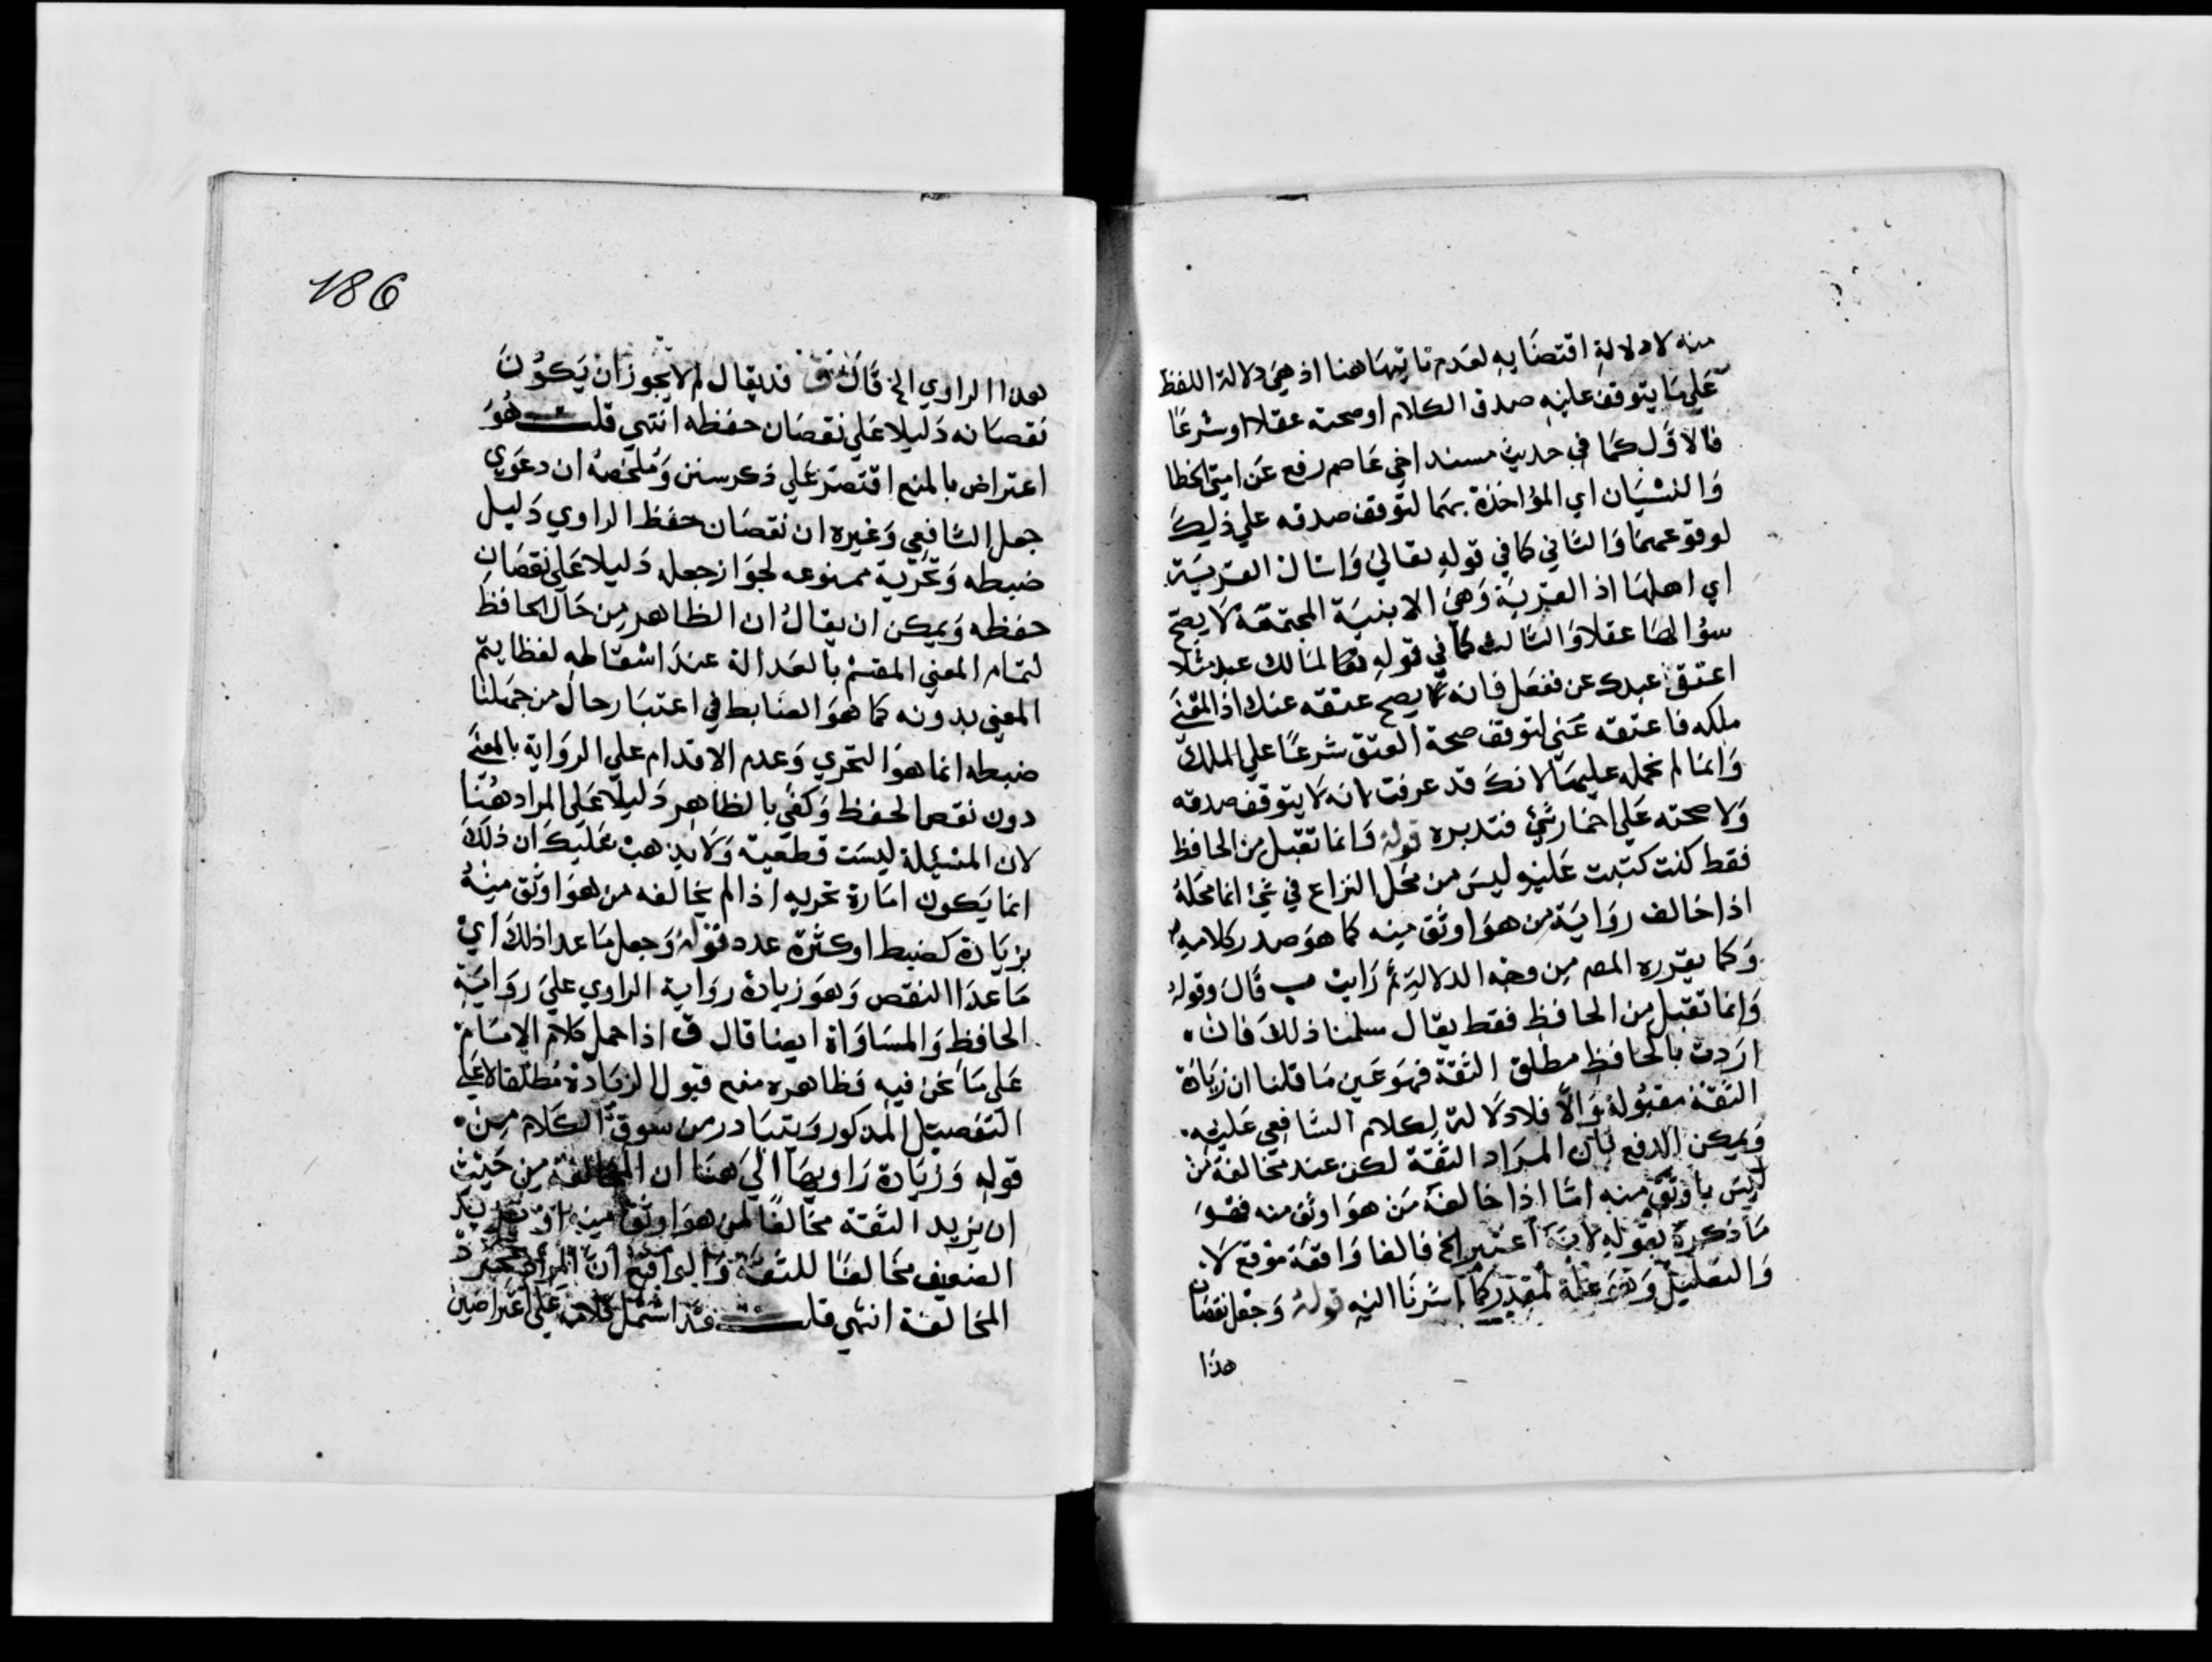 منه لا دلالة اقتضايه لعدم تاتيها هنا اذ هي دلالة اللفظ
علي ما يتوقف عليه صدق الكلام او صحته عقلا او شرعا
فالاول كما في حديث مسند اخي عاصم رفع عن امتي الخطا
والنسيان اي المؤاخذة بهما لتوقف صدقه علي ذلك
لوقوعهما والثاني كما في قوله تعالي واسال القرية
اي اهلها اذ القرية وهي الابنية المجتمعة لا يصح
سؤالها عقلا والثالث كما في قوله لمالك عبد مثلا
اعتق عبدك عني ففعل فانه يصح عتقه عنك اذ المعني
ملكه فاعتقه عني لتوقف صحة العتق شرعا علي الملك
وانما لم نحمله عليهما لانك قد عرفت بانه لا يتوقف صدقه
ولا صحته علي اضمار شئ فتدبره قوله وانما تقبل من الحافظ
فقط كنت كتبت عليه وليس من محل النزاع في شئ انما محله
اذا خالف رواية من هو اوثق منه كما هو صدر كلامه
وكما يقرره المص من وجه الدلالة ثم رايت ب قال وقوله
وانما تقبل من الحافظ فقط يقال سلمنا ذلك فان
اردت بالحافظ مطلق الثقة فهو عين ما قلنا ان زيادة
الثقة مقبولة والا فلا دلالة لكلام الشافعي عليه
ويمكن الدفع بان المراد الثقة لكن عند مخالفة من
ليس باوثق منه اما اذا خالفه من هو اوثق منه فهو
ما ذكره بقوله لانه اعتبر الخ فالفا واقعة موقع لا
والتعليل وقع علة لمقدر كما اشرنا اليه قوله وجعل نقصان
هذا
186
هذا الراوي الخ قال ق قد يقال لم لا يجوز ان يكون
نقصانه دليلا علي نقصان حفظه انتهي قلت هو
اعتراض بالمنع اقتصر علي ذكر سنن وملخصه ان دعوي
جعل الشافعي وغيره ان نقصان حفظ الراوي دليل
ضبطه وتحريه ممنوعه لجواز جعله دليلا علي نقصان
حفظه ويمكن ان يقال ان الظاهر من حال الحافظ
لتمام المعني المقسم بالعدالة عند اسقاطه لفظا يتم
المعني بدونه كما هو الضابط في اعتبار حال من جهلنا
ضبطه انما هو التحري وعدم الاقدام علي الرواية بالمعني
دون نقص الحفظ وكفي بالظاهر دليلا علي المراد هنا
لان المسئلة ليست قطعية ولا يذهب عليك ان ذلك
انما يكون امارة تحريه اذا لم يخالفه من هو اوثق منه
بزيادة كضبط او كثرة عدد قوله وجعل ما عدا ذلك اي
ما عدا النقص وهو زيادة رواية الراوي علي رواية
الحافظ والمساواة ايضا قال ق اذا حمل كلام الامام
علي ما نحن فيه فظاهره منع قبول الزيادة مطلقا لا علي
التفصيل المذكور ويتبادر من سوق الكلام من
قوله وزيادة راويها الي هنا ان المخالفة من حيث
ان يزيد الثقة مخالفا لمن هو اوثق منه او
الضعيف مخالفا للثقة والواقع ان المراد مجرد
المخالفة انتهي قلت قد اشتمل كلامه علي اعتراضين